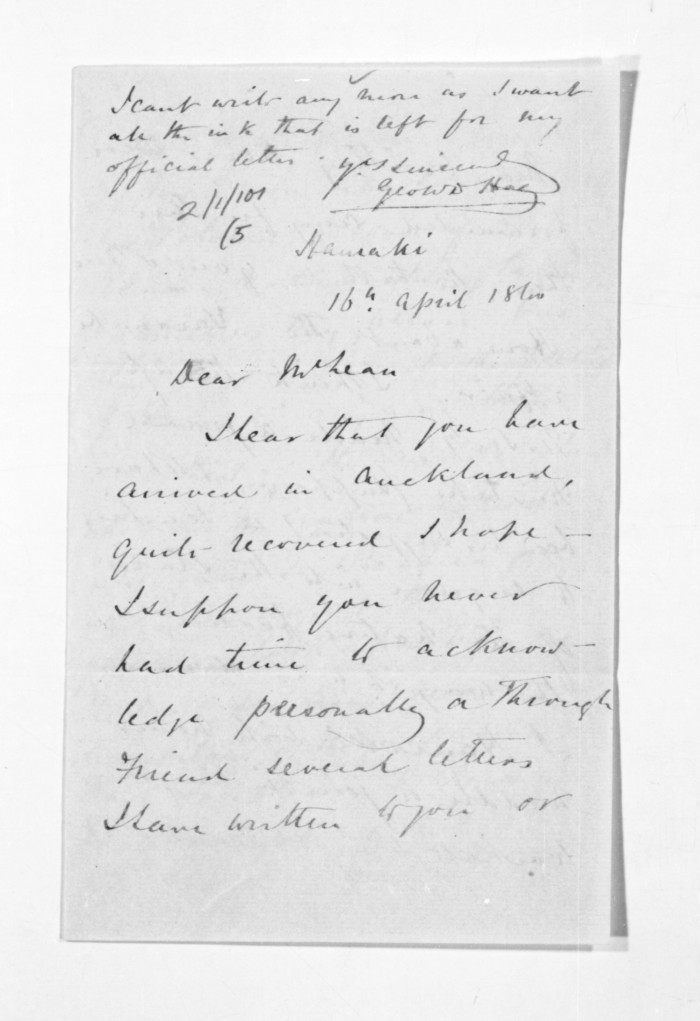 I cant write any more as I want
all the ink that is left for my
official letter. yrs Sincerely
Geo W D Hay
2/1/101
(5
Hauraki
16th. April 1860
Dear McLean
I hear that you have
arrived in Auckland,
quite recovered I hope –
I suppose you never
had time to acknow-
ledge personally a through
Friend several letters
I have written to you or